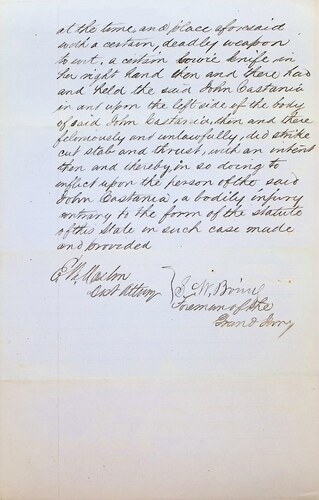 at the time, and place aforesaid
with a certain, deadly weapon
to wit, a certain bowie knife in
her right hand then and there had
and held the said John Castania
in and upon the left side of the body
of said John Castania, then and there
feloniously and unlawfully, did strike
cut stab and thrust, with an intent
then and thereby, in so doing to
inflict upon the person of the said
John Castania, a bodily injury
contrary to the form of the statute
of this State in such case made
and provided
Dist Attorney
Foreman of the
Grand Jury